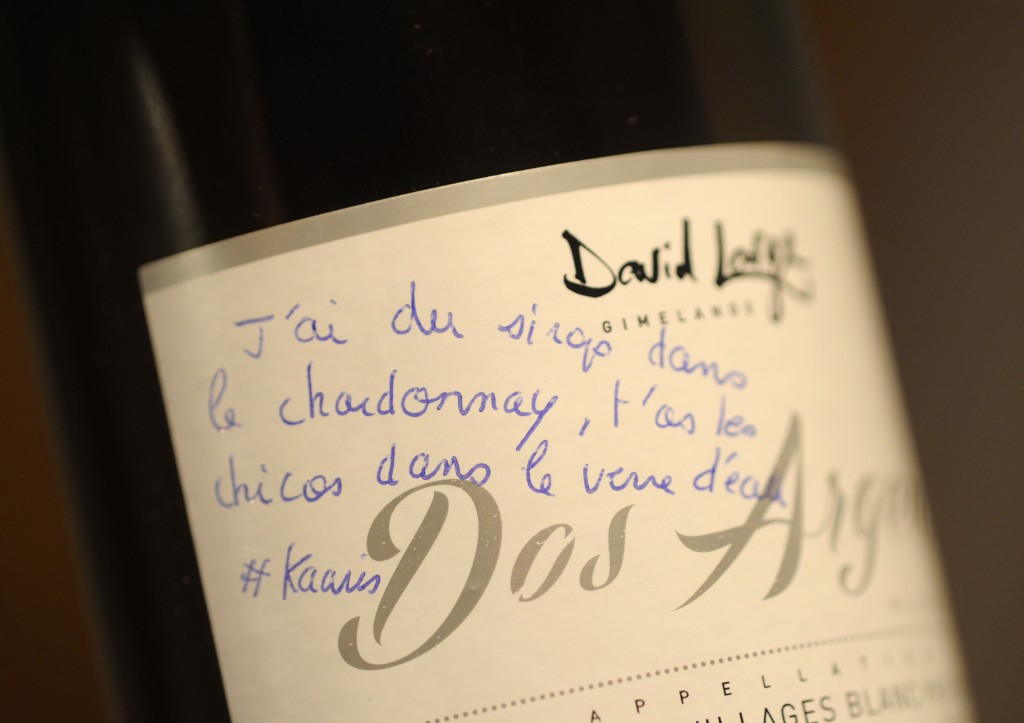 David Large
GIMELANDE
J'ai du sirop dans
le chardonnay, t'as les
chicos dans le verre d'eau
#Kaaris
Dos Argen
APPELLATI
VILLAGES BLANC